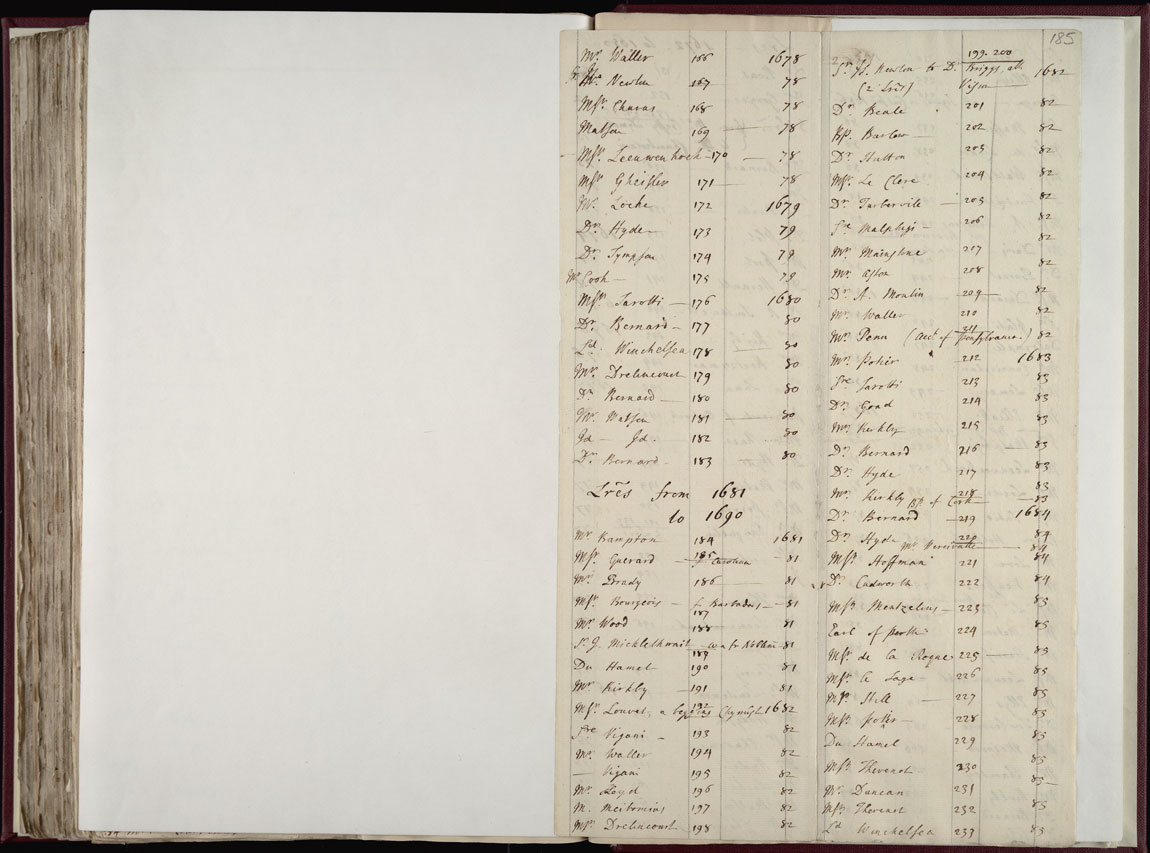 185
Mr. Waller 166 1678
Mr. Newton 167 78
Msr. Charas 168 78
Matson 169 78
Msr. Leeuwenhoek - 170 - 78
Msr. Gheisler 171 - 78
Mr. Locke 172 1679
Dr. Hyde - 173 79
Dr. Sympson 174 79
Mr. Cook - 175 79
Msr. Sarotti - 176 1680
Dr. Bernard - 177 80
Ld. Winchelsea 178 80
Mr. Drelincourt 179 80
Dr. Bernard - 180 80
Mr. Matson 181 80
Jd - Jd. 182 80
Dr. Bernard - 183 80
Lres from 1681
to 1690
Mr. Bampton 184 1681
Msr. Guerard 185 fr Carolina 81
Mr. Brady 186 81
Msr. Bourgeois - fr Barbados - 81
187
Mr. Wood 188 81
Sr. J. Micklethwait 81
189
Du Hamel 190 81
Mr. Kirkby - 191 81
Msr. Louvat, a Chymist 192 1682
Sre Vigani - 193 82
Mr. Waller 194 82
- Vigani 195 82
Mr. Loyd 196 82
M. Meibomius 197 82
Msr. Drelincourt 198 82
199. 200
Sr. Is. Newton to D. Briggs, abt 1682
(2 Lres) Vision
Dr. Beale 201 82
Bp. Barlow 202 82
Dr. Hutton 203 82
Msr. Le Clerc 204 82
Dr. Turbervile - 205 82
Sre Malphigi - 206 82
Mr. Mainstone 207 82
Mr. Aston 208 82
Dr. A. Moulin - 209 - 82
Mr. Waller 210 82
Mr. Penn (acct. of Pensylvania.) 211 82
Mr. Pokir 212 1683
Sre Sarotti 213 83
Dr. Goad 214 83
Mr. Kirkby 215 83
Dr. Bernard 216 - 83
Dr. Hyde 217 83
Mr. Kirkby 218 83
Bp. of Cork - 83
Dr. Bernard - 219 1684
Dr. Hyde 220 84
Mr. 84
Msr. Hoffman 221 84
Dr. Cudworth 222 84
Msr. Mentzelius - 223 85
Earl of Perth 224 85
Msr. de la Roque 225 - 85
Msr. le Sage - 226 85
Msr. Hill - 227 85
Msr. - 228 85
Du Hamel 229 85
Msr. Thevenot - 230 85
Mr. Duncan 231 85
Msr. Thevenot 232 85
Ld Winchelsea 233 85